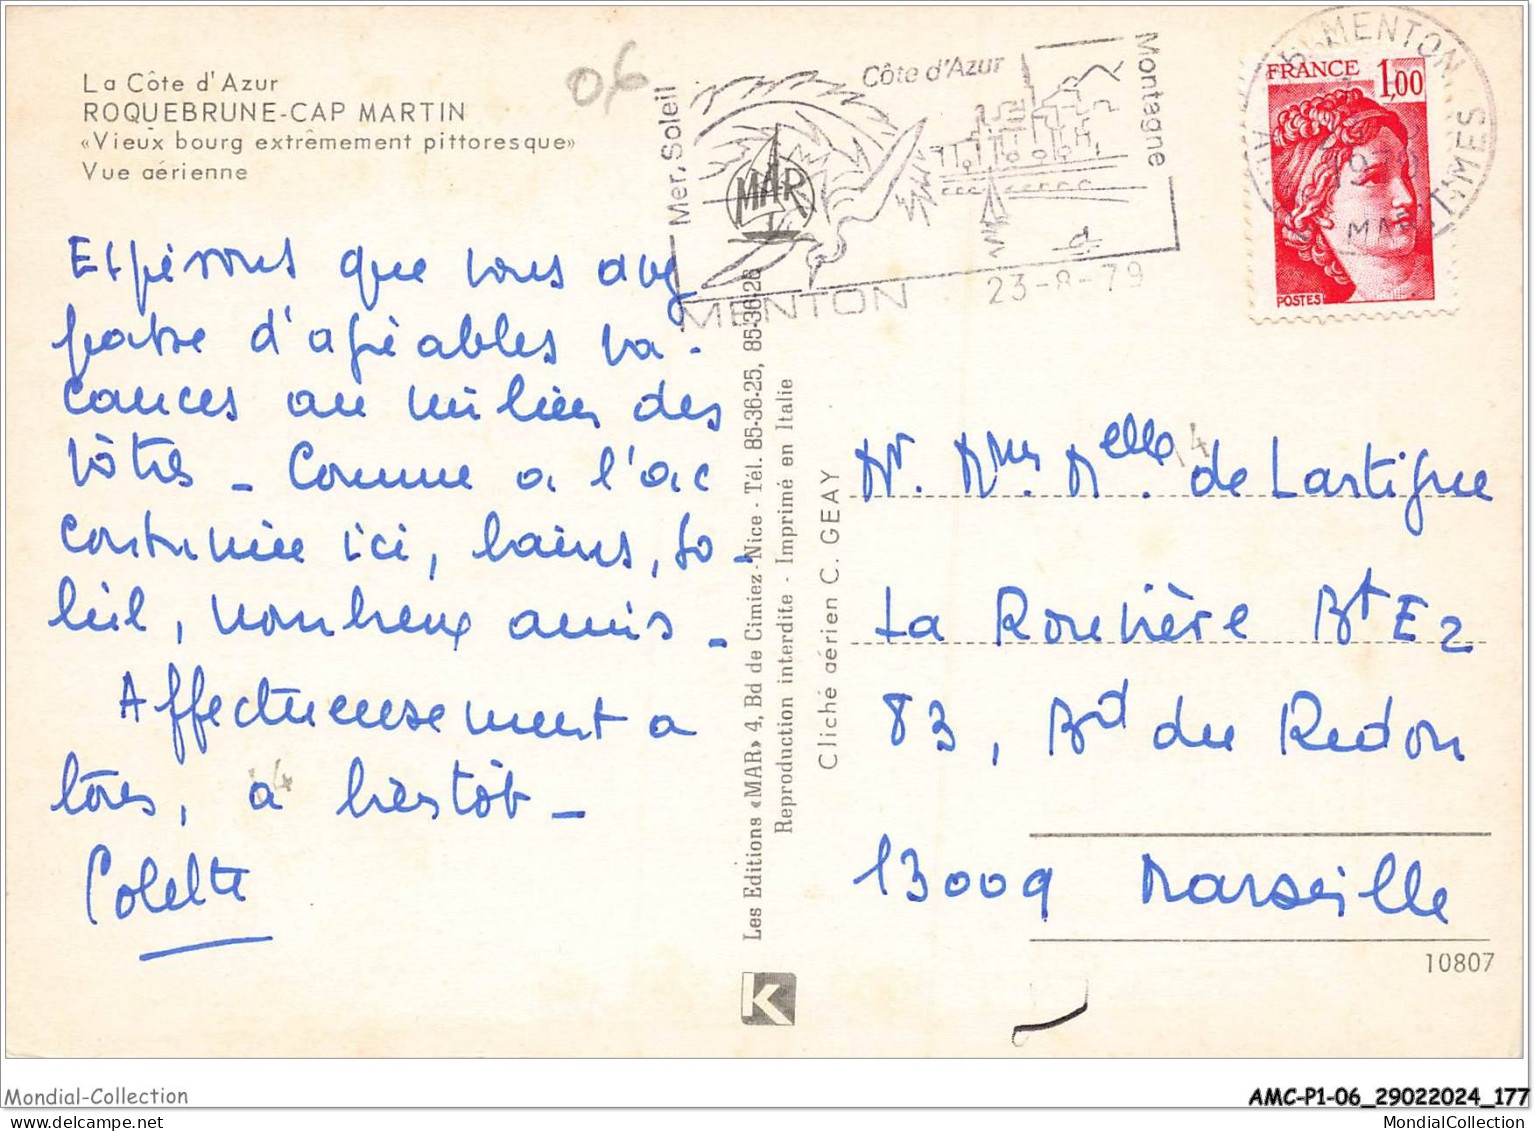 La Côte d'Azur
ROQUEBRUNE-CAP MARTIN
«Vieux bourg extrêmement pittoresque»
Vue aérienne
06
Mer, Soleil
Côte d'Azur
Montagne
MAR
MENTON
23-8-79
MENTON
FRANCE 1,00
POSTES
Espérons que vous avez
passé d'agréables va-
cances au milieu des
vôtres - Comme à l'ac
coutumée ici, bains, so-
leil, nombreux amis -
Affectueusement à
tous, à bientôt -
Colette
Les Editions «MAR» 4, Bd de Cimiez - Nice - Tél. 85-36-25, 85-36-26
Reproduction interdite - Imprimé en Italie
Cliché aérien C. GEAY
Mr. Mme. Melle. de Lartigue
La Rouvière Bt E2
83, Bd du Redon
13009 Marseille
10807
K
Mondial-Collection
AMC-P1-06_29022024_177
MondialCollection.com